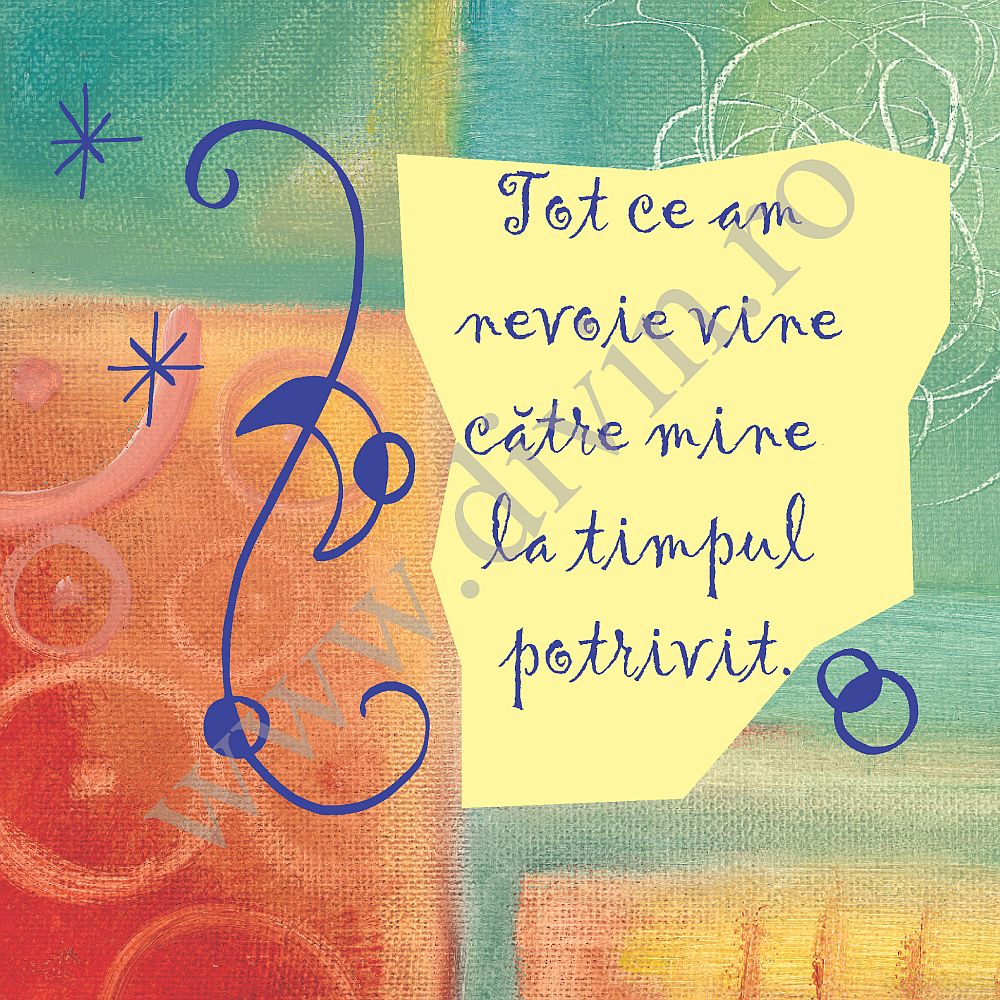 Tot ce am
nevoie vine
către mine
la timpul
potrivit.
www.divin.ro